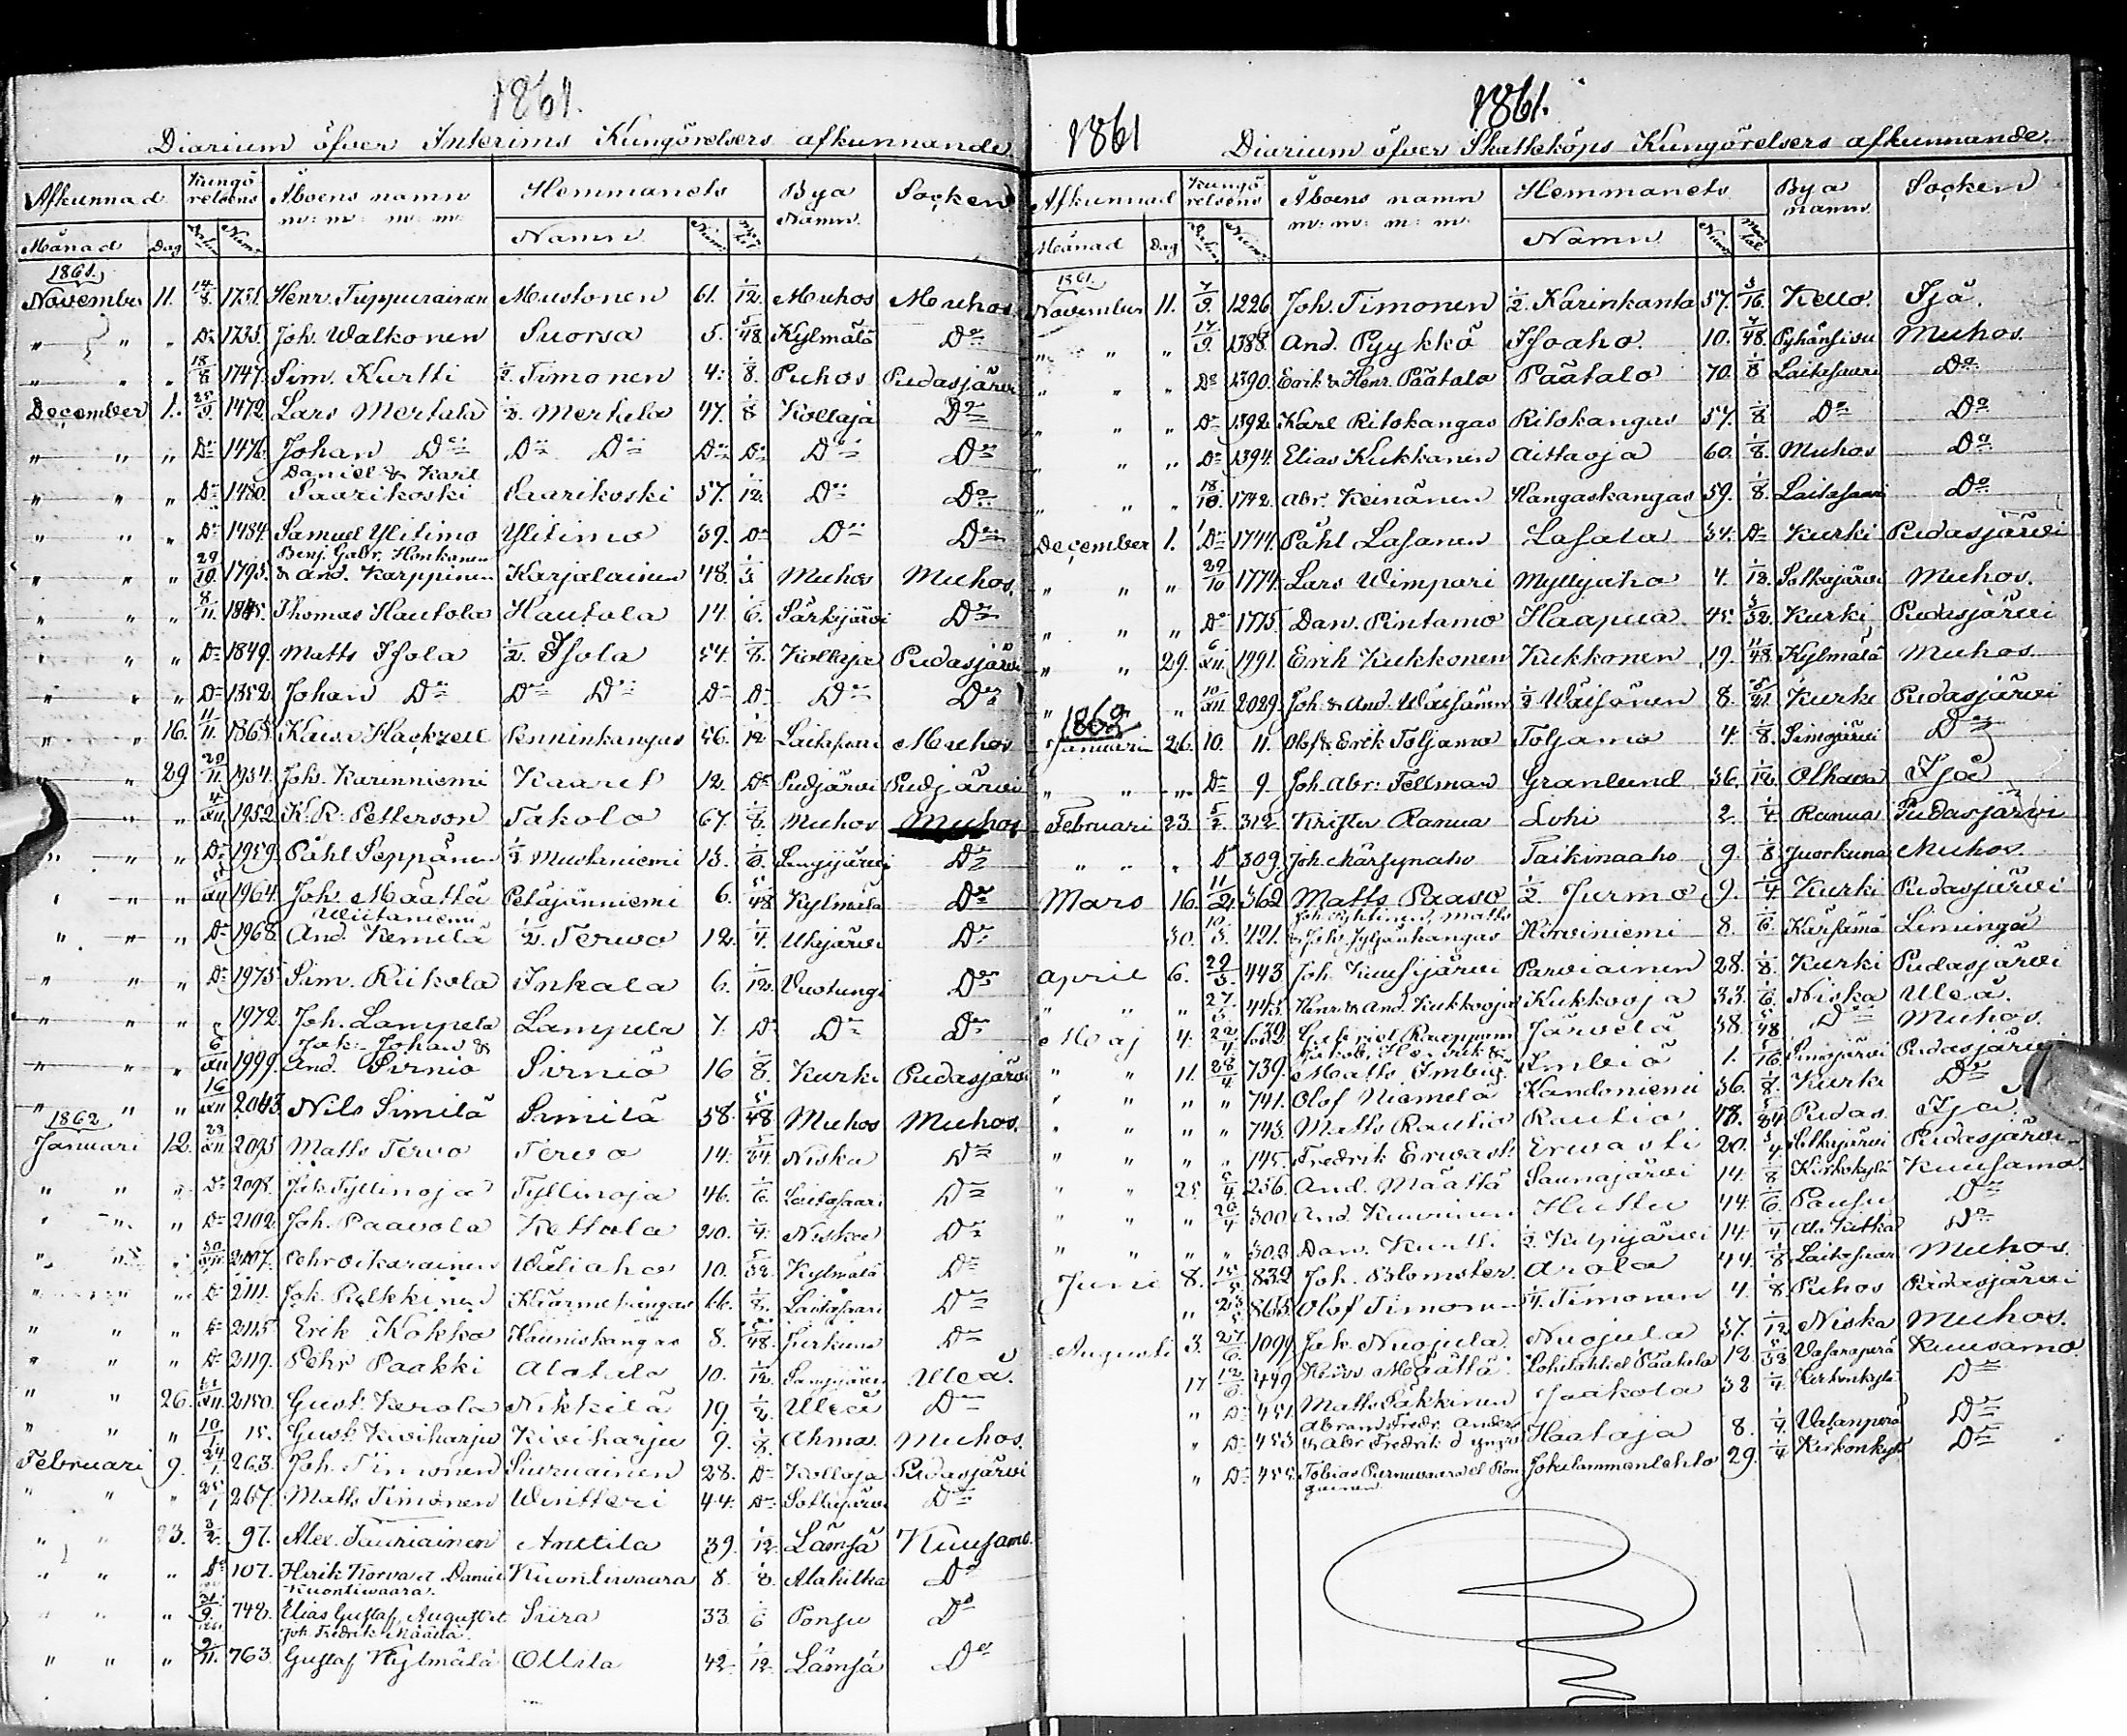 1861.
Diarium öfver Interims Kungörelsers afkunnande.
Afkunnad Kungörelsens Åboens namn m: m: m: m: Hemmanets Bya Namn Socken
Månad Dag Datum Num: Namn Num: Mantal
1861.
November 11. 14/8. 1731. Henr. Tuppurainen Mustonen 61. 1/12. Muhos Muhos.
" " " Do 1735. Joh. Walkonen Suorsa 5. 5/48 Kylmälä Do
" " " 18/8 1747. Sim. Kurtti 1/2. Timonen 4. 1/8. Puhos Pudasjärvi
December 1. 25/9. 1472. Lars Mertala 1/2. Mertala 47. 1/8 Kollaja Do
" " " Do 1476. Johan Do Do Do Do Do Do Do
" " " Do 1480. Daniel & Karl Saarikoski Saarikoski 57. 1/12. Do Do
" " " Do 1484. Samuel Ylitimo Ylitimo 39. Do Do Do
" " " 29/10. 1795. Benj. Gabr. Honkanen & And. Karppinen Karjalainen 48. 1/3 Muhos Muhos.
" " " 8/11. 1845. Thomas Hautola Hautala 14. 1/6. Särkijärvi Do
" " " Do 1849. Matts Isola 1/2. Isola 54. 1/8. Kollaja Pudasjärvi
" " " Do 1852. Johan Do Do Do Do Do Do Do
" " 16. 11/11. 1865. Kaisa Hackzell Penninkangas 56. 1/12 Laitasaari Muhos
" 29 29/11. 1934. Joh. Karinniemi Kaaret 12. Do Pudjärvi Pudjärvi
" " 4/XII 1952. K. R. Petterson Takolo 67. 1/8. Muhos Muhos
" " " Do 1959. Påhl Seppänen 1/2 Mustaniemi 13. 1/6. Do
" " " 5/XII 1964. Joh. Määttä Petäjänniemi 6. 5/48 Kylmälä Do
" " " Do 1968. Wiitaniemi And. Kemilä 1/2. Terwo 12. 1/4. Utajärvi Do
" " " Do 1975 Sim. Riikola Inkala 6. 1/12. Vuotungi Do
" " " " 1972. Joh. Lampela Lampela 7. Do Do Do
" " " 6/XII 1999. Jak: Johan & And. Pirniö Sirniö 16 1/8. Kurki Pudasjärvi
" " " 16/XII 2043. Nils Similä Similä 58. 5/48 Muhos Muhos.
1862
Januari 12. 28/XII 2095 Matts Tervo Tervo 14. 5/24. Niska Do
" " " Do 2098. Jak Tyllinoja Tyllinoja 46. 1/6. Laitasaari Do
" " " Do 2102. Joh. Paavola Kettula 20. 1/4. Niska Do
" " " 30/XII 2107. Wäliaho 10. 5/32. Kylmälä Do
" " " Do 2111. Joh. Pulkkinen 66. 1/8. Laitasaari Do
" " " Do 2115 Erik Kokko Kauniskangas 8. 5/48. Do
" " " Do 2119. Pehr Paakki Alatalo 10. 1/12. Uleå.
" " 26. 2150. Gust. Kerola Nikkilä 19. 1/2. Uleå Do
" " " 10/1 15. Gust. Kiviharju Kiviharju 9. 1/8. Ahmas. Muhos.
Februari 9. 24/1. 263. Joh. Timonen Siuruainen 28. Do Kollaja Pudasjärvi
" " " 25/1 267. Matts Timonen Wintteri 44. Do Sotkajärvi Do
" " 23. 3/2. 97. Alex. Tauriainen Anttila 39. 1/12. Lämsä Kuusamo.
" " " Do 107. Hirik Korva et Daniel Kuontiwaara. Kuontiwaara 8. 1/8. Alakitka Do
" " " 31/9. 742. Elias Gustaf, August et Joh. Fredrik Määttä. Siira 33. 1/6 Do
" " " 9/11. 763. Gustaf Kylmälä Ollila 42. 1/12. Lämsä Do
1861
1861.
Diarium öfver Skatteköps Kungörelsers afkunnande.
Afkunnad Kungörelsens Åboens namn m: m: m: m: Hemmanets Bya namn Socken
Månad Dag Datum Num: Namn Num: Mantal
1861.
November 11. 7/9. 1226. Joh. Timonen 1/2. Karinkanta 37. 3/16. Kello. Ijå.
" " " 17/9. 1388. And. Pyykkö Isoaho. 10. 7/48. Pyhänsivu Muhos.
" " " Do 1390. Erik & Henr. Päätalo Päätalo 70. 1/8 Laitasaari Do
" " " Do 1392. Karl Ritokangas Ritokangas 57. 1/8 Do Do
" " " Do 1394. Elias Kukkanen Aittaoja 60. 1/8. Muhos Do
" " " 18/10. 1742. Abr. Keinänen Hangaskangas 59. 1/8. Laitasaari Do
December 1. Do 1744. Påhl Lasanen Lasala 34. Do Kurki Pudasjärvi
" " " 29/10 1774. Lars Wimpari Myllyaho 4. 1/12. Sotkajärvi Muhos.
" " " Do 1775. Dan. Pintamo Haapua 45. 5/32. Kurki Pudasjärvi
" " 29. 6/XII. 1991. Erik Kukkonen Kukkonen 19. 11/48. Kylmälä Muhos.
" " 10/XII 2029. Joh. & And. Wäisänen 1/2 Wäisänen 8. 5/21. Kurki Pudasjärvi
1862
Januari 26. 10. 11. Olof & Erik Toljamo Toljamo 4. 1/8. Simojärvi Do
" " " Do 9. Joh. Abr. Fellman Granlund 36. 1/12. Olhava Ijå
Februari 23. 5/2. 312 Krister Ranua Lohi 2. 1/4 Ranua Pudasjärvi
" " " Do 309. Joh. Märsynaho Taikinaaho 9. 1/8 Juorkuna Muhos.
Mars 16. 11/2. 362 Matts Paaso 1/2. Jurmo 9. 1/4 Kurki Pudasjärvi
30. 10/3. 421. Joh. Pyhtinen, Matts & Joh. Hirviniemi 8. 1/6. Kärsämä Limingå
April 6. 29/3. 443 Joh. Kuusijärvi Parviainen 28. 1/8. Kurki Pudasjärvi
" " " 27/3. 445. Henr. & And. Kukkooja Kukkooja 33. 1/6. Niska Uleå.
Maj 4. 22/4. 639. Gabriel Järvelä 38. 5/48 Do Muhos.
" " 11. 28/4. 739. Jakob, Henrik & Matts Imbiö. Imbiö 1. 5/16 Simojärvi Pudasjärvi
" " " " 741. Olof Niemelä Kandoniemi 36. 1/8. Kurki Do
" " " " 743. Matts Rautio Rautio 48. 5/24 Pudas. Ijå
" " " " 745. Fredrik Erwasti Erwasti 20. 3/4. Sotkajärvi Pudasjärvi
" " 25 5/4. 256. And. Määttä Saunajärvi 14. 1/8 Kirkokylä Kuusamo.
" " " 26/4 300. And. Huttu 44. 1/6 Do
" " " " 303. Dan. 14. 1/4 Ala Kitka Do
Juni 8. 15/5. 832 Joh. Blomster. Arola 44. 1/8 Laitasaari Muhos.
" 23/5. 865. Olof Timonen 1/4. Timonen 4. 1/8. Puhos Pudasjärvi
Augusti 3. 27/6. 1099. Jak. Nuojula. Nuojula 37. 1/12 Niska Muhos.
17 12/6. 449. Määttä Päätalo 12. Vasaraperä Kuusamo.
" Do 451. Matts Päkkinen Jaakola 32 1/4. Kirkonkylä Do
" Do 453 Abram, Fredr. Anders & Abr. Fredrik d yngre Haataja 8. 1/4. Do
" Do 455. Tobias Purnuvaara et Kon Jokilammenlehto 29. 1/4 Kirkonkylä Do